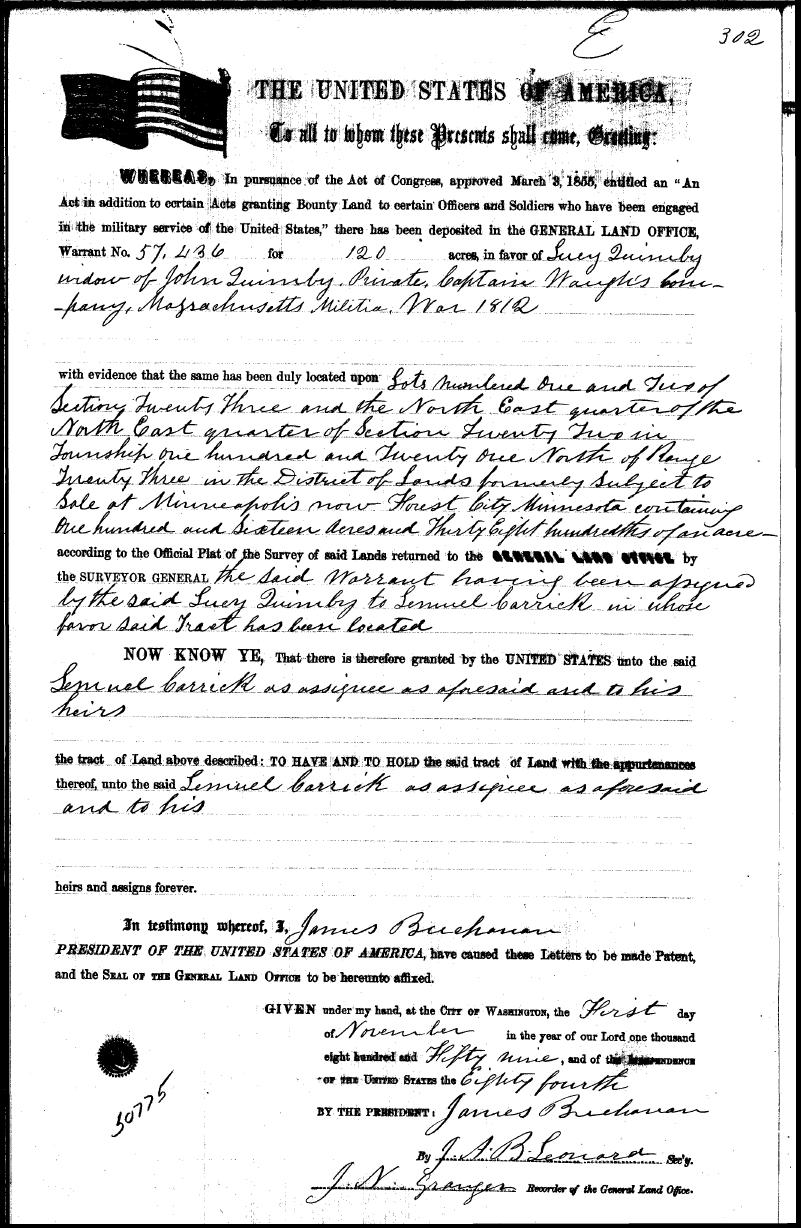 E
302
THE UNITED STATES OF AMERICA,
To all to whom these Presents shall come, Greeting:
WHEREAS, In pursuance of the Act of Congress, approved March 3, 1855, entitled an "An
Act in addition to certain Acts granting Bounty Land to certain Officers and Soldiers who have been engaged
in the military service of the United States," there has been deposited in the GENERAL LAND OFFICE,
Warrant No. 57.436 for 120 acres, in favor of Lucy Quimby
widow of John Quimby, Private, Captain Waugh's Com-
-pany, Massachusetts Militia, War 1812
with evidence that the same has been duly located upon Lots numbered One and Two of
Section Twenty Three and the North East quarter of the
North East quarter of Section Twenty Two in
Township One hundred and Twenty One North of Range
Twenty Three in the District of Lands formerly Subject to
Sale at Minneapolis now Forest City Minnesota containing
One hundred and Sixteen Acres and Thirty Eight hundredths of an acre-
according to the Official Plat of the Survey of said Lands returned to the GENERAL LAND OFFICE by
the SURVEYOR GENERAL the said Warrant having been assigned
by the said Lucy Quimby to Lemuel Carrick in whose
favor said Tract has been located
NOW KNOW YE, That there is therefore granted by the UNITED STATES unto the said
Lemuel Carrick as assignee as aforesaid and to his
heirs
the tract of Land above described: TO HAVE AND TO HOLD the said tract of Land with the appurtenances
thereof, unto the said Lemuel Carrick as assignee as aforesaid
and to his
heirs and assigns forever.
In testimony whereof, I, James Buchanan
PRESIDENT OF THE UNITED STATES OF AMERICA, have caused these Letters to be made Patent,
and the SEAL OF THE GENERAL LAND OFFICE to be hereunto affixed.
GIVEN under my hand, at the CITY OF WASHINGTON, the First day
of November in the year of our Lord one thousand
eight hundred and Fifty nine, and of the INDEPENDENCE
OF THE UNITED STATES the Eighty fourth
BY THE PRESIDENT: James Buchanan
By J. A. B. Leonard Sec'y.
J. N. Granger Recorder of the General Land Office.
50775